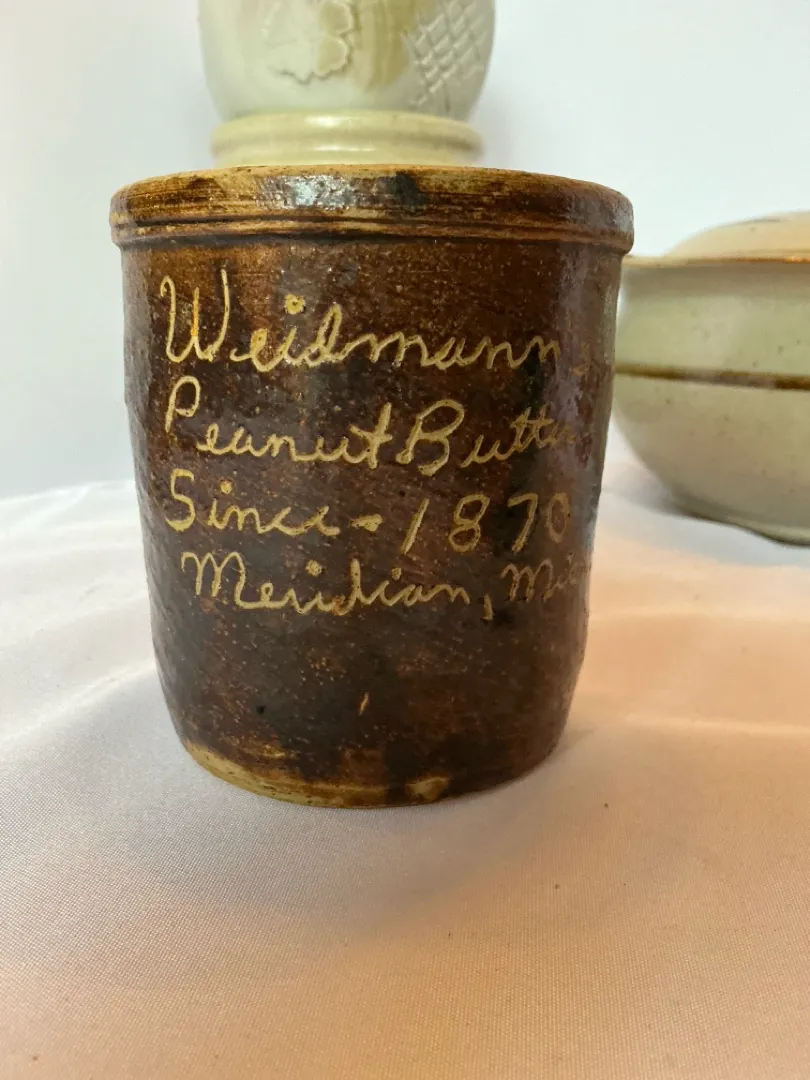 Weidmann
Peanut Butte
Since - 1870
Meridian, Mi